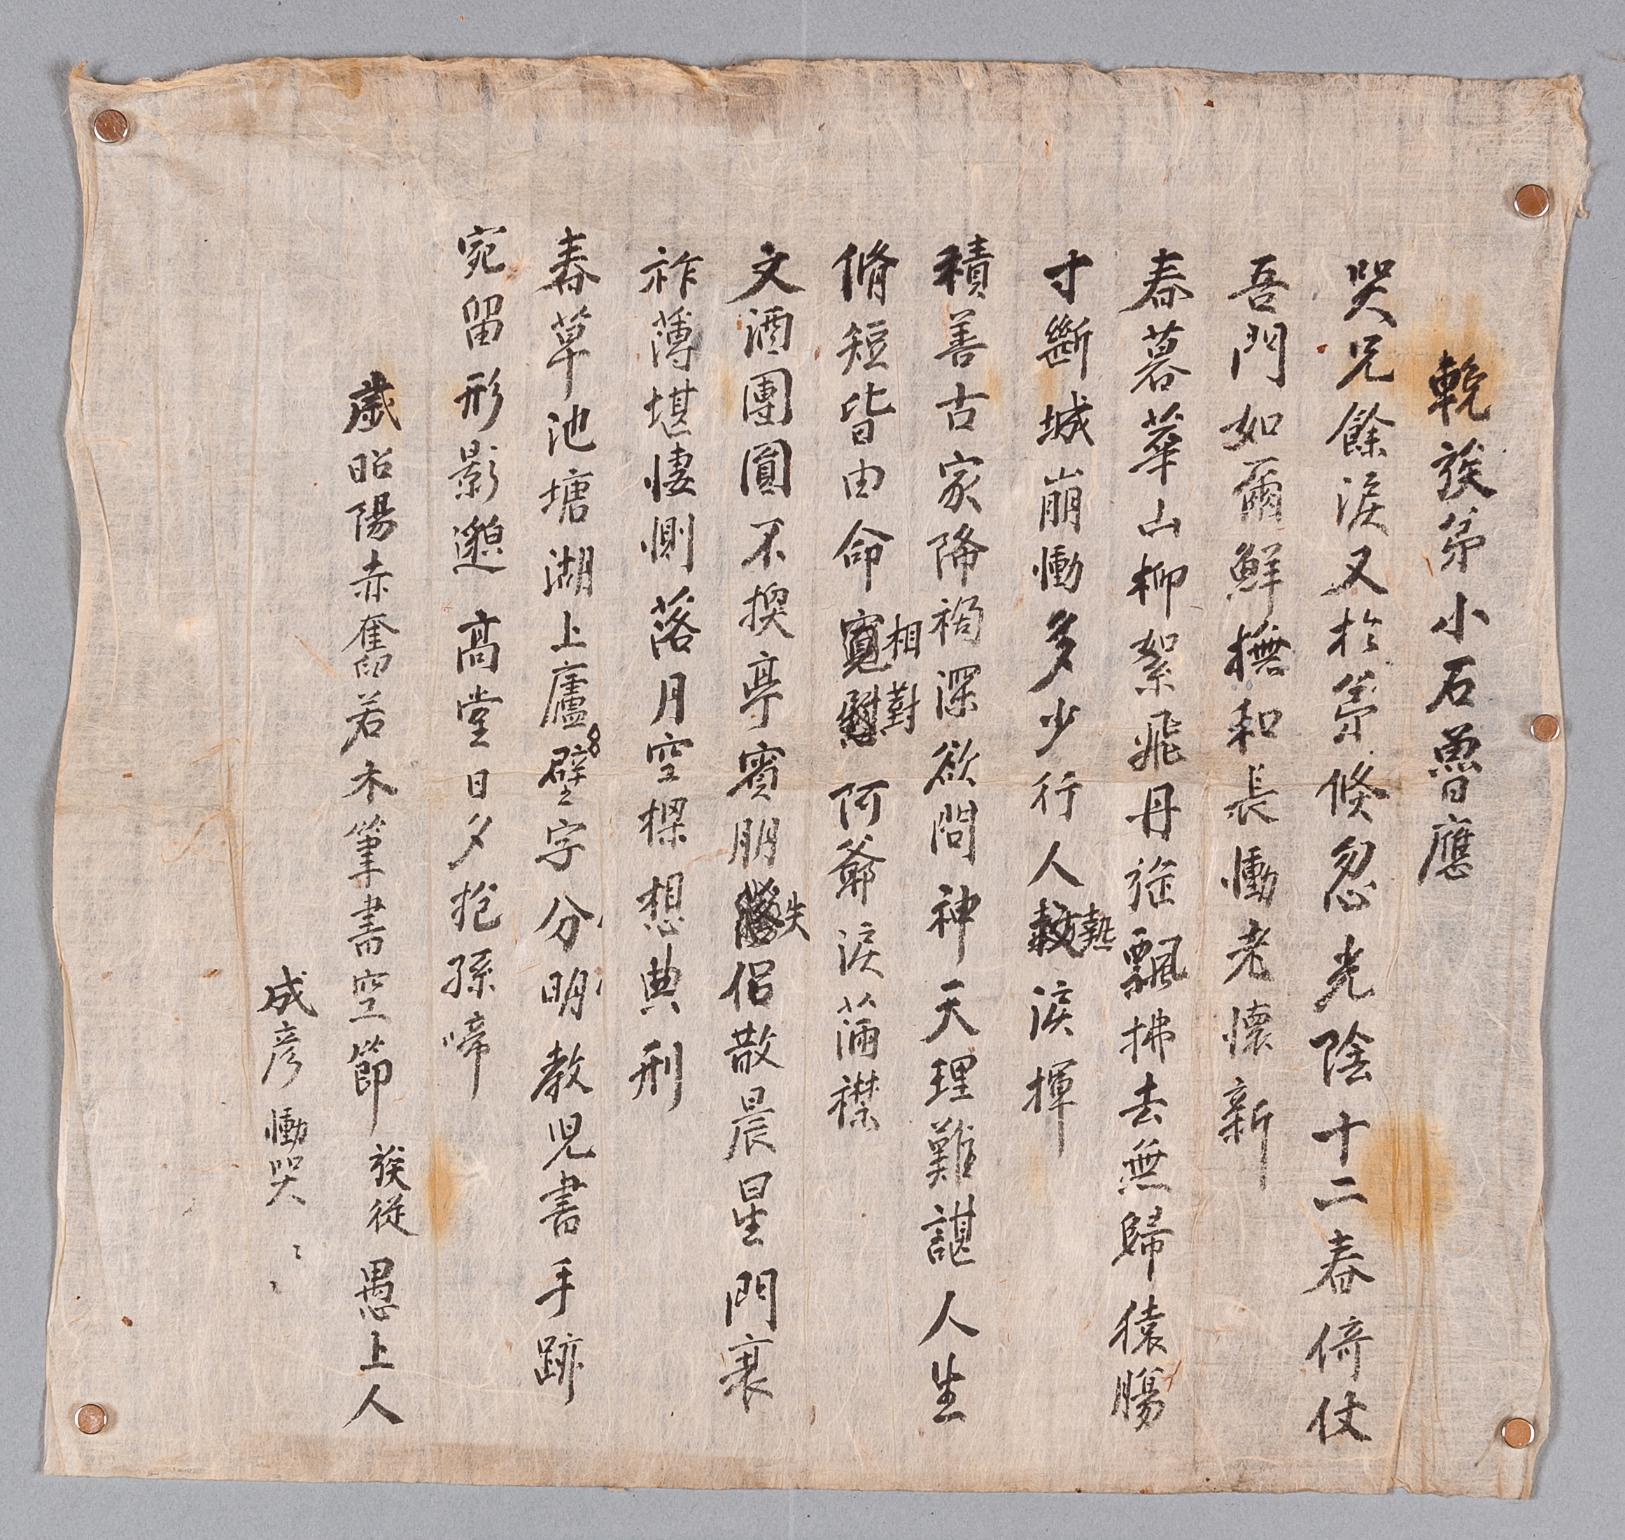 輓族弟小石魯應
哭兄餘淚又於弟倏忽光陰十二春倚仗
吾門如爾鮮撫和長慟老懷新
春暮華山柳絮飛丹旌飄拂去無歸猿腸
寸斷城崩慟多少行人熱淚揮
積善古家降禍深欲問神天理難諶人生
脩短皆由命相對阿爺淚滿襟
文酒團圓不換亭賓朋失侶散晨星門衰
祚薄堪悽惻落月空樑想典刑
春草池塘湖上廬壁字分明教兒書手跡
宛留形影邈高堂日夕抱孫啼
歲昭陽赤奮若木筆書空節族從愚上人
成彦慟哭〻〻